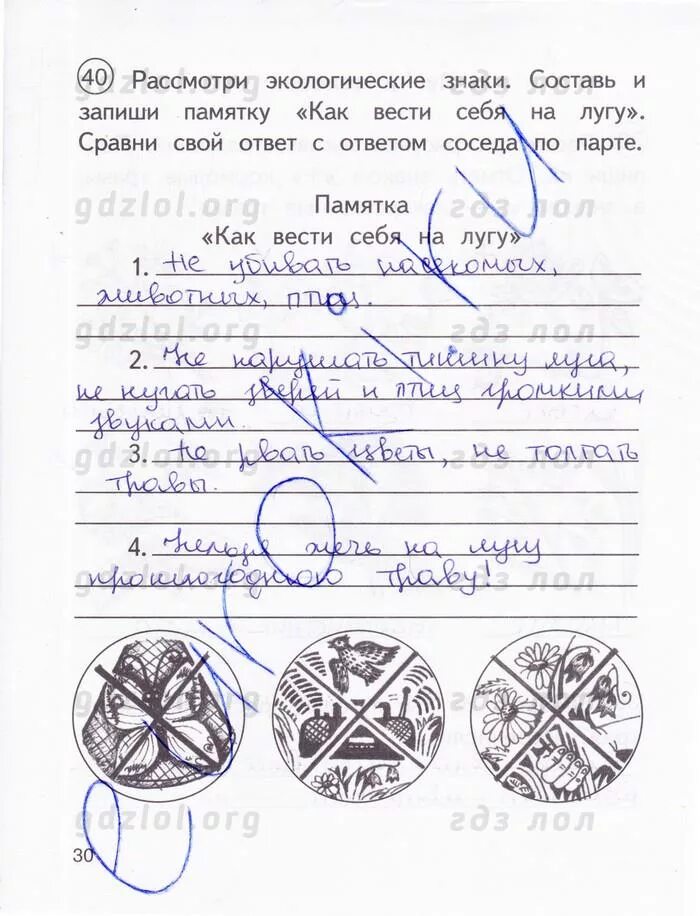 40 Рассмотри экологические знаки. Составь и
запиши памятку «Как вести себя на лугу».
Сравни свой ответ с ответом соседа по парте.
gdzlol.org гдз лол
Памятка
gdzlol.org гдз лол
«Как вести себя на лугу»
1. Не убивать насекомых,
животных, птиц.
gdzlol.org гдз лол
2. Не нарушать тишину луга,
не пугать зверей и птиц громкими
звуками.
3. Не рвать цветы, не топтать
gdzlol.org гдз лол
травы.
4. Нельзя жечь на лугу
прошлогоднюю траву!
gdzlol.org гдз лол
gdzlol.org гдз лол
gdzlol.org гдз лол
30